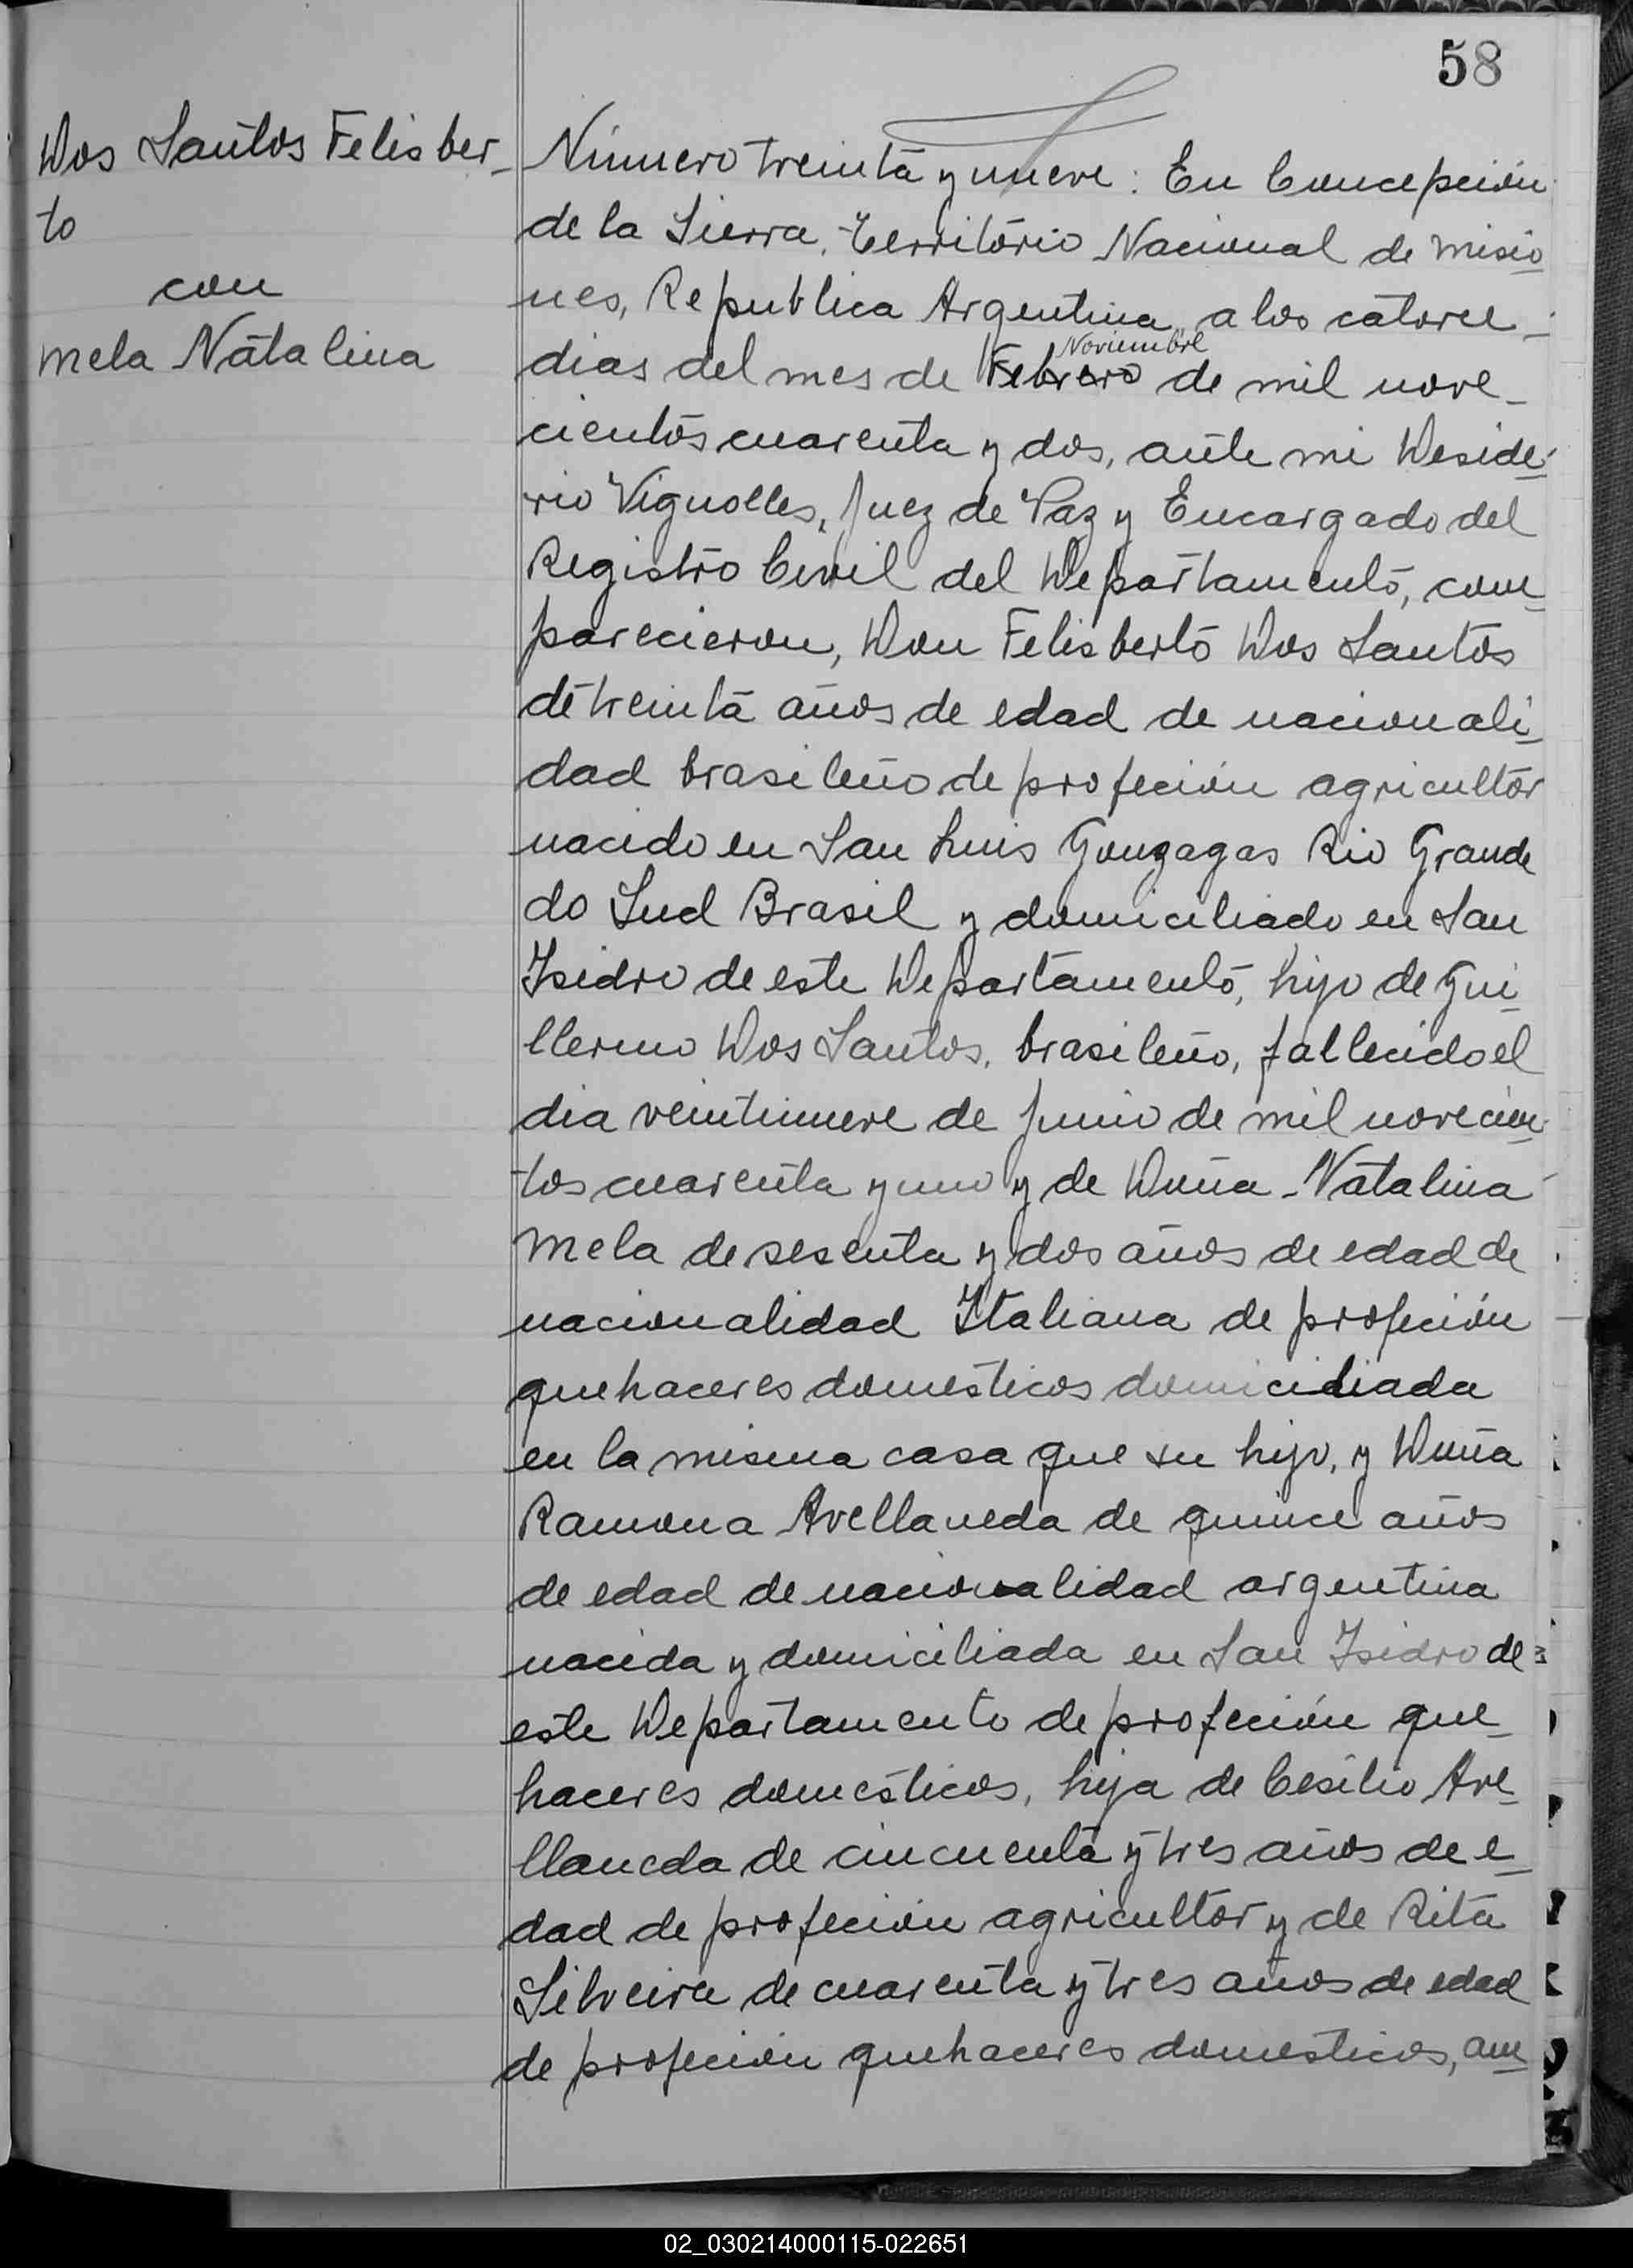 58
Dos Santos Felisber-
to
con
Mela Natalina
Número treinta y nueve: En Concepción
de la Sierra, Territorio Nacional de Misio
nes, Republica Argentina, a los catorce -
dias del mes de Febrero Noviembre de mil nove-
cientos cuarenta y dos, ante mi Deside-
rio Vignolles, Juez de Paz y Encargado del
Registro Civil del Departamento, com-
parecieron, Don Felisberto Dos Santos
de treinta años de edad de nacionali-
dad brasileño de profeción agricultor
nacido en San Luis Gonzagas Rio Grande
do Sud Brasil y domiciliado en San
Isidro de este Departamento, hijo de Gui-
llermo Dos Santos, brasileño, fallecido el
dia veintinueve de Junio de mil novecien-
tos cuarenta y uno y de Doña Natalina
Mela de sesenta y dos años de edad de
nacionalidad Italiana de profeción
quehaceres domesticos domiciliada
en la misma casa que su hijo, y Doña
Ramona Avellaneda de quince años
de edad de nacionalidad argentina
nacida y domiciliada en San Isidro de
este Departamento de profeción que-
haceres domesticos, hija de Cesilio Ave-
llaneda de cincuenta y tres años de e-
dad de profeción agricultor y de Rita
Silveira de cuarenta y tres años de edad
de profeción quehaceres domesticos, am-
02_030214000115-022651